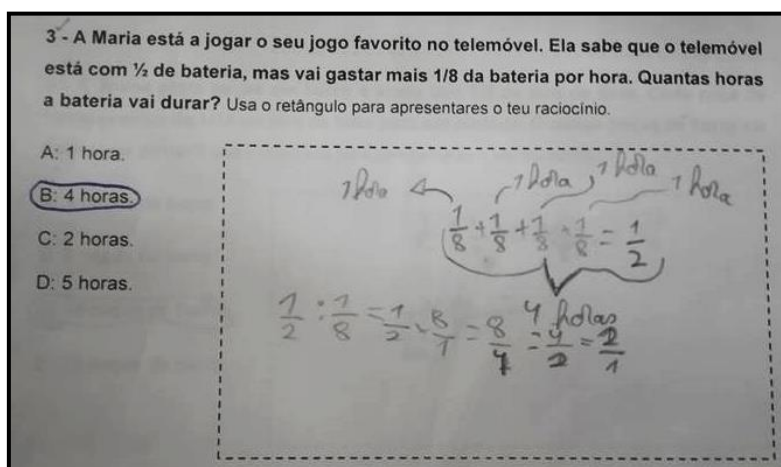 3 - A Maria está a jogar o seu jogo favorito no telemóvel. Ela sabe que o telemóvel
está com ½ de bateria, mas vai gastar mais 1/8 da bateria por hora. Quantas horas
a bateria vai durar? Usa o retângulo para apresentares o teu raciocínio.
A: 1 hora.
B: 4 horas.
C: 2 horas.
D: 5 horas.
1 hora 1 hora 1 hora 1 hora
1/8 + 1/8 + 1/8 + 1/8 = 1/2
4 horas
1/2 : 1/8 = 1/2 × 8/1 = 8/4 = 4/2 = 2/1